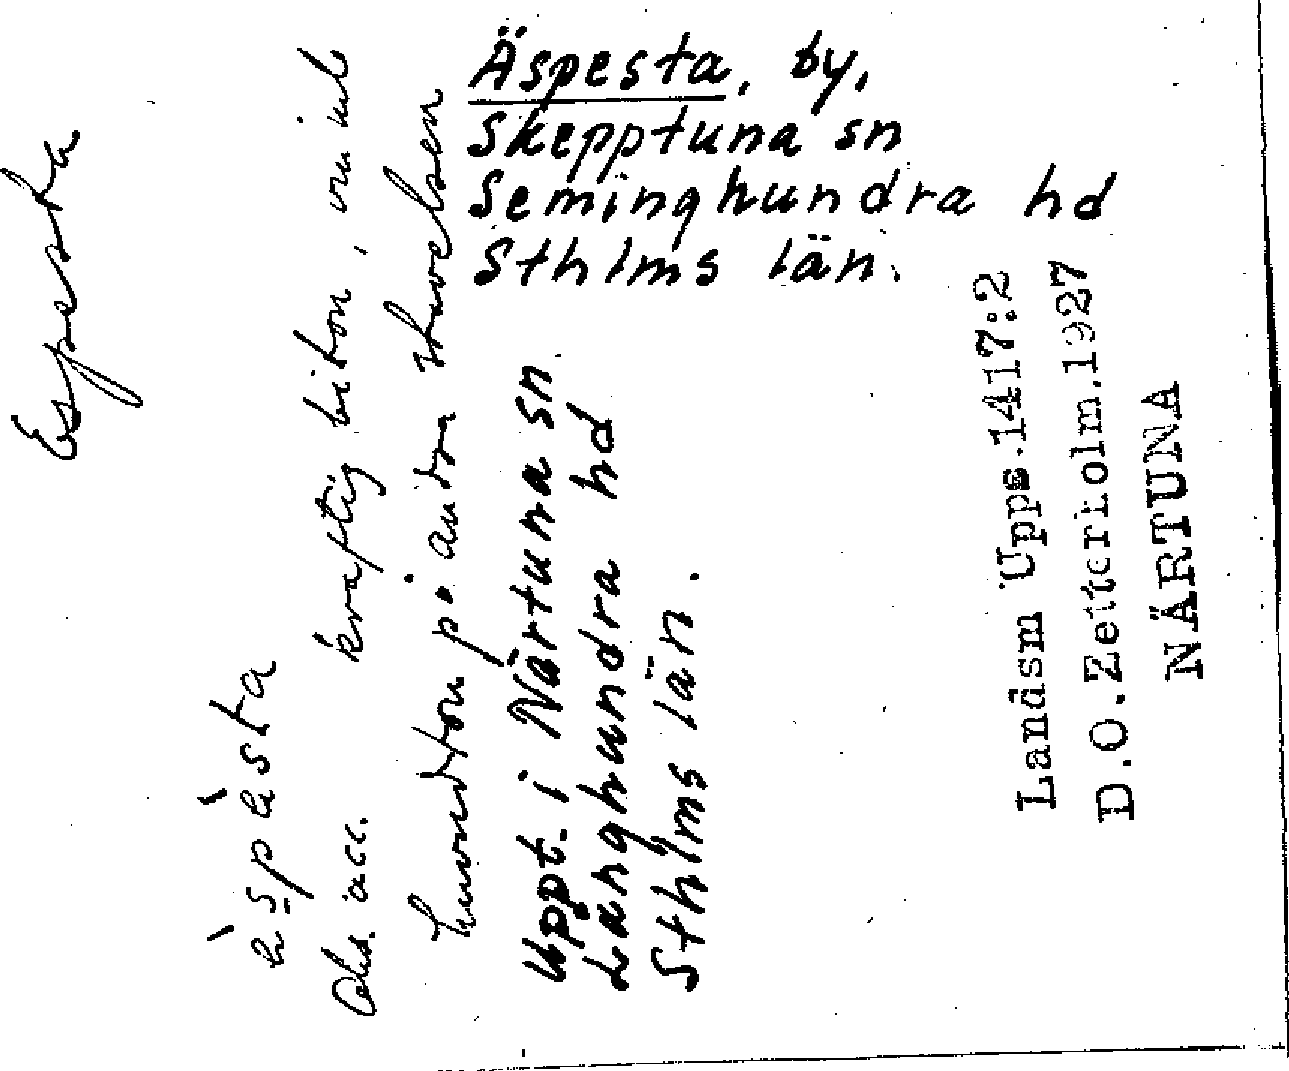 Äspesta, by,
Skepptuna sn
Seminghundra hd
Sthlms län.
Espesta
kraftig biton, om inte
huvudton på andra stavelsen
Uppt. i Närtuna sn
Långhundra hd
Sthlms län.
Landsm Upps.1417:2
D.O.Zetterholm.1927
NÄRTUNA